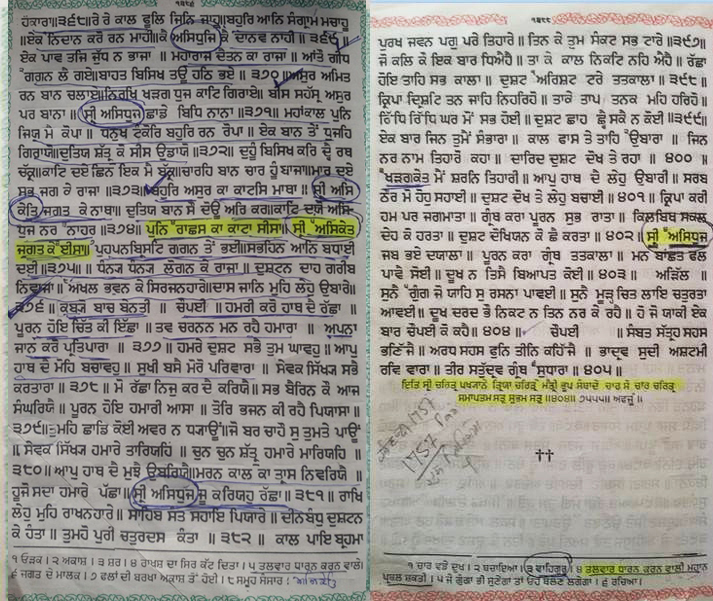 ੧੩੬੬
ਹੰਕਾਰਾ॥੩੬੮॥ਰੇ ਰੇ ਕਾਲ ਫੂਲਿ ਜਿਨਿ ਜਾਹੁ॥ਬਹੁਰਿ ਆਨਿ ਸੰਗ੍ਰਾਮ ਮਚਾਹੂ
॥ਏਕ ਨਿਦਾਨ ਕਰੋ ਰਨ ਮਾਹੀ॥ਕੈ ਅਸਿਧੁਜਿ ਕੈ ਦਾਨਵ ਨਾਹੀ॥ ੩੬੯॥
ਏਕ ਪਾਵ ਤਜਿ ਜੁੱਧ ਨ ਭਾਜਾ ॥ ਮਹਾਰਾਜ ਦੈਤਨ ਕਾ ਰਾਜਾ॥ ਆਂਤੌ ਗੀਧ
ਗਗਨ ਲੈ ਗਏ॥ਬਾਹਤ ਬਿਸਿਖ ਤਊ ਹਠਿ ਭਏ॥ ੩੭੦॥ਅਸੁਰ ਅਮਿਤ
ਰਨ ਬਾਨ ਚਲਾਏ॥ਨਿਰਖਿ ਖੜਗ ਧੁਜ ਕਾਟਿ ਗਿਰਾਏ॥ ਬੀਸ ਸਹੰਸ੍ਰ ਅਸੁਰ
ਪਰ ਬਾਨਾ॥ ਸ੍ਰੀ ਅਸਿਧੁਜ ਛਾਡੇ ਬਿਧਿ ਨਾਨਾ॥ ੩੭੧॥ ਮਹਾਂਕਾਲ ਪੁਨਿ
ਜਿਯ ਮੈ ਕੋਪਾ॥ ਧਨੁਖ ਟੰਕੋਰਿ ਬਹੁਰਿ ਰਨ ਰੋਪਾ॥ ਏਕ ਬਾਨ ਤੇ ਧੁਜਹਿ
ਗਿਰਾਯੋ॥ਦੁਤਿਯ ਸ਼ੱਤ੍ਰ ਕੋ ਸੀਸ ਉਡਾਯੋ॥ ੩੭੨॥ ਦੁਹੂੰ ਬਿਸਿਖ ਕਰਿ ਦ੍ਵੈ ਰਥ
ਚੱਕ੍ਰ॥ਕਾਟਿ ਦਏ ਛਿਨ ਇਕ ਮੈ ਬੱਕ੍ਰ॥ਚਾਰਹਿ ਬਾਨ ਚਾਰ ਹੂੰ ਬਾਜਾ॥ਮਾਰ ਦਏ
ਸਭ ਜਗ ਕੇ ਰਾਜਾ॥੩੭੩॥ਬਹੁਰਿ ਅਸੁਰ ਕਾ ਕਾਟਸਿ ਮਾਥਾ॥ ਸ੍ਰੀ ਅਸਿ
ਕੇਤਿ ਜਗਤ ਕੇ ਨਾਥਾ॥ ਦੁਤਿਯ ਬਾਨ ਸੌ ਦੋਊ ਅਰਿ ਕਰ॥ਕਾਟਿ ਦਯੋ ਅਸਿ
ਧੁਜ ਨਰ ਨਾਹਰ॥ ੩੭੪॥ ਪੁਨਿ ਰਾਛਸ ਕਾ ਕਾਟਾ ਸੀਸਾ॥ ਸ੍ਰੀ ਅਸਿਕੇਤ
ਜਗਤ ਕੇ ਈਸਾ॥ ਪੁਹਪਨਬਿਸਟਿ ਗਗਨ ਤੇ ਭਈ॥ਸਭਹਿਨ ਆਨਿ ਬਧਾਈ
ਦਈ॥੩੭੫॥ ਧੰਨਯ ਧੰਨਯ ਲੋਗਨ ਕੇ ਰਾਜਾ॥ ਦੁਸ਼ਟਨ ਦਾਹ ਗਰੀਬ
ਨਿਵਾਜਾ॥ ਅਖਲ ਭਵਨ ਕੇ ਸਿਰਜਨਹਾਰੇ॥ਦਾਸ ਜਾਨਿ ਮੁਹਿ ਲੇਹੁ ਉਬਾਰੇ॥
੩੭੬॥ ਕਬ੍ਯੋ ਬਾਚ ਬੇਨਤੀ॥ ਚੌਪਈ॥ ਹਮਰੀ ਕਰੋ ਹਾਥ ਦੈ ਰੱਛਾ॥
ਪੂਰਨ ਹੋਇ ਚਿੱਤ ਕੀ ਇੱਛਾ॥ ਤਵ ਚਰਨਨ ਮਨ ਰਹੈ ਹਮਾਰਾ॥ ਅਪਨਾ
ਜਾਨ ਕਰੋ ਪ੍ਰਤਿਪਾਰਾ॥ ੩੭੭॥ ਹਮਰੇ ਦੁਸ਼ਟ ਸਭੈ ਤੁਮ ਘਾਵਹੁ॥ ਆਪੁ
ਹਾਥ ਦੈ ਮੋਹਿ ਬਚਾਵਹੁ॥ ਸੁਖੀ ਬਸੈ ਮੋਰੋ ਪਰਿਵਾਰਾ॥ ਸੇਵਕ ਸਿੱਖ੍ਯ ਸਭੈ
ਕਰਤਾਰਾ॥੩੭੮॥ ਮੋ ਰੱਛਾ ਨਿਜੁ ਕਰ ਦੈ ਕਰਿਯੈ॥ ਸਭ ਬੈਰਿਨ ਕੌ ਆਜ
ਸੰਘਰਿਯੈ॥ ਪੂਰਨ ਹੋਇ ਹਮਾਰੀ ਆਸਾ॥ ਤੋਰਿ ਭਜਨ ਕੀ ਰਹੈ ਪਿਯਾਸਾ॥
੩੭੯॥ਤੁਮਹਿ ਛਾਡਿ ਕੋਈ ਅਵਰ ਨ ਧ੍ਯਾਊਂ॥ਜੋ ਬਰ ਚਾਹੌ ਸੁ ਤੁਮਤੇ ਪਾਊਂ
॥ ਸੇਵਕ ਸਿੱਖ੍ਯ ਹਮਾਰੇ ਤਾਰਿਯਹਿ॥ ਚੁਨ ਚੁਨ ਸ਼ੱਤ੍ਰੁ ਹਮਾਰੇ ਮਾਰਿਯਹਿ॥
੩੮੦॥ ਆਪੁ ਹਾਥ ਦੈ ਮੁਝੈ ਉਬਰਿਯੈ॥ਮਰਨ ਕਾਲ ਕਾ ਤ੍ਰਾਸ ਨਿਵਰਿਯੈ॥
ਹੂਜੋ ਸਦਾ ਹਮਾਰੇ ਪੱਛਾ॥ਸ੍ਰੀ ਅਸਿਧੁਜ ਜੂ ਕਰਿਯਹੁ ਰੱਛਾ॥ ੩੮੧॥ ਰਾਖਿ
ਲੇਹੁ ਮੁਹਿ ਰਾਖਨਹਾਰੇ॥ ਸਾਹਿਬ ਸੰਤ ਸਹਾਇ ਪਿਯਾਰੇ॥ ਦੀਨਬੰਧੁ ਦੁਸ਼ਟਨ
ਕੇ ਹੰਤਾ॥ ਤੁਮਹੋ ਪੁਰੀ ਚਤੁਰਦਸ ਕੰਤਾ॥ ੩੮੨॥ ਕਾਲ ਪਾਇ ਬ੍ਰਹਮਾ
੧ ਓੜਕ। ੨ ਅਕਾਸ਼। ੩ ਸ਼ਰ। ੪ ਰਾਖਸ਼ ਦਾ ਸਿਰ ਕੱਟ ਦਿੱਤਾ। ੫ ਤਲਵਾਰ ਧਾਰਨ ਕਰਨ ਵਾਲੇ।
੬ ਜਗਤ ਦੇ ਮਾਲਕ। ੭ ਫਲਾਂ ਦੀ ਬਰਖਾ ਅਕਾਸ਼ ਤੋਂ ਹੋਈ। ੮ ਸਮੂਹ ਸੰਸਾਰ।
ਪੁਰਖ ਜਵਨ ਪਗੁ ਪਰੇ ਤਿਹਾਰੇ॥ ਤਿਨ ਕੇ ਤੁਮ ਸੰਕਟ ਸਭ ਟਾਰੇ॥ ੩੯੭॥
ਜੋ ਕਲਿ ਕੌ ਇਕ ਬਾਰ ਧਿਐਹੈ॥ ਤਾ ਕੇ ਕਾਲ ਨਿਕਟਿ ਨਹਿ ਐਹੈ॥ ਰੱਛਾ
ਹੋਇ ਤਾਹਿ ਸਭ ਕਾਲਾ॥ ਦੁਸ਼ਟ ਅਰਿਸ਼ਟ ਟਰੇਂ ਤਤਕਾਲਾ॥ ੩੯੮॥
ਕ੍ਰਿਪਾ ਦ੍ਰਿਸ਼ਟਿ ਤਨ ਜਾਹਿ ਨਿਹਰਿਹੋ॥ ਤਾਕੇ ਤਾਪ ਤਨਕ ਮਹਿ ਹਰਿਹੋ॥
ਰਿੱਧਿ ਸਿੱਧਿ ਘਰ ਮੋਂ ਸਭ ਹੋਈ॥ ਦੁਸ਼ਟ ਛਾਹ ਛ੍ਵੈ ਸਕੈ ਨ ਕੋਈ॥ ੩੯੯॥
ਏਕ ਬਾਰ ਜਿਨ ਤੁਮੈਂ ਸੰਭਾਰਾ॥ ਕਾਲ ਫਾਸ ਤੇ ਤਾਹਿ ਉਬਾਰਾ॥ ਜਿਨ
ਨਰ ਨਾਮ ਤਿਹਾਰੋ ਕਹਾ॥ ਦਾਰਿਦ ਦੁਸ਼ਟ ਦੋਖ ਤੇ ਰਹਾ॥ ੪੦੦॥
ਖੜਗਕੇਤ ਮੈਂ ਸ਼ਰਨਿ ਤਿਹਾਰੀ॥ ਆਪੁ ਹਾਥ ਦੈ ਲੇਹੁ ਉਬਾਰੀ॥ ਸਰਬ
ਠੌਰ ਮੋ ਹੋਹੁ ਸਹਾਈ॥ ਦੁਸ਼ਟ ਦੋਖ ਤੇ ਲੇਹੁ ਬਚਾਈ॥ ੪੦੧॥ ਕ੍ਰਿਪਾ ਕਰੀ
ਹਮ ਪਰ ਜਗਮਾਤਾ॥ ਗ੍ਰੰਥ ਕਰਾ ਪੂਰਨ ਸੁਭ ਰਾਤਾ॥ ਕਿਲਬਿਖ ਸਕਲ
ਦੇਹ ਕੋ ਹਰਤਾ॥ ਦੁਸ਼ਟ ਦੋਖਿਯਨ ਕੋ ਛੈ ਕਰਤਾ॥ ੪੦੨॥ਸ੍ਰੀ ਅਸਿਧੁਜ
ਜਬ ਭਏ ਦਯਾਲਾ॥ ਪੂਰਨ ਕਰਾ ਗ੍ਰੰਥ ਤਤਕਾਲਾ॥ ਮਨ ਬਾਂਛਤ ਫਲ
ਪਾਵੈ ਸੋਈ॥ ਦੂਖ ਨ ਤਿਸੈ ਬਿਆਪਤ ਕੋਈ॥ ੪੦੩॥ ਅੜਿੱਲ॥
ਸੁਨੈ ਗੁੰਗ ਜੋ ਯਾਹਿ ਸੁ ਰਸਨਾ ਪਾਵਈ॥ ਸੁਨੈ ਮੂੜ ਚਿਤ ਲਾਇ ਚਤੁਰਤਾ
ਆਵਈ॥ ਦੂਖ ਦਰਦ ਭੌ ਨਿਕਟ ਨ ਤਿਨ ਨਰ ਕੇ ਰਹੈ॥ ਹੋ ਜੋ ਯਾਕੀ ਏਕ
ਬਾਰ ਚੌਪਈ ਕੋ ਕਹੈ॥ ੪੦੪॥ ਚੌਪਈ ॥ ਸੰਬਤ ਸੱਤ੍ਰਹ ਸਹਸ
ਭਣਿੱਜੈ॥ ਅਰਧ ਸਹਸ ਫੁਨਿ ਤੀਨਿ ਕਹਿੱਜੈ॥ ਭਾਦ੍ਰਵ ਸੁਦੀ ਅਸ਼ਟਮੀ
ਰਵਿ ਵਾਰਾ॥ ਤੀਰ ਸਤੁੱਦ੍ਰਵ ਗ੍ਰੰਥ ਸੁਧਾਰਾ॥ ੪੦੫॥
ਇਤਿ ਸ੍ਰੀ ਚਰਿਤ੍ਰ ਪਖ੍ਯਾਨੇ ਤ੍ਰਿਯਾ ਚਰਿਤ੍ਰੇ ਮੰਤ੍ਰੀ ਭੂਪ ਸੰਬਾਦੇ ਚਾਰ ਸੌ ਚਾਰ ਚਰਿਤ੍ਰ
ਸਮਾਪਤਮ ਸਤੁ ਸੁਭਮ ਸਤੁ॥੪੦੪॥ ੭੫੫੫॥ ਅਫਜੂੰ॥
1757
††
੧ ਚਾਰ ਵੱਡੇ ਦੁਖ। ੨ ਬਚਾਇਆ। ੩ ਵਾਹਿਗੁਰੂ। ੪ ਤਲਵਾਰ ਧਾਰਨ ਕਰਨ ਵਾਲੀ ਮਹਾਨ
ਪ੍ਰਬਲ ਸ਼ਕਤੀ। ੫ ਜੋ ਗੁੰਗਾ ਭੀ ਸੁਣੇਗਾ ਤਾਂ ਓਹ ਬੋਲਣ ਲਗੇਗਾ। ੬ ਰਚਿਆ।